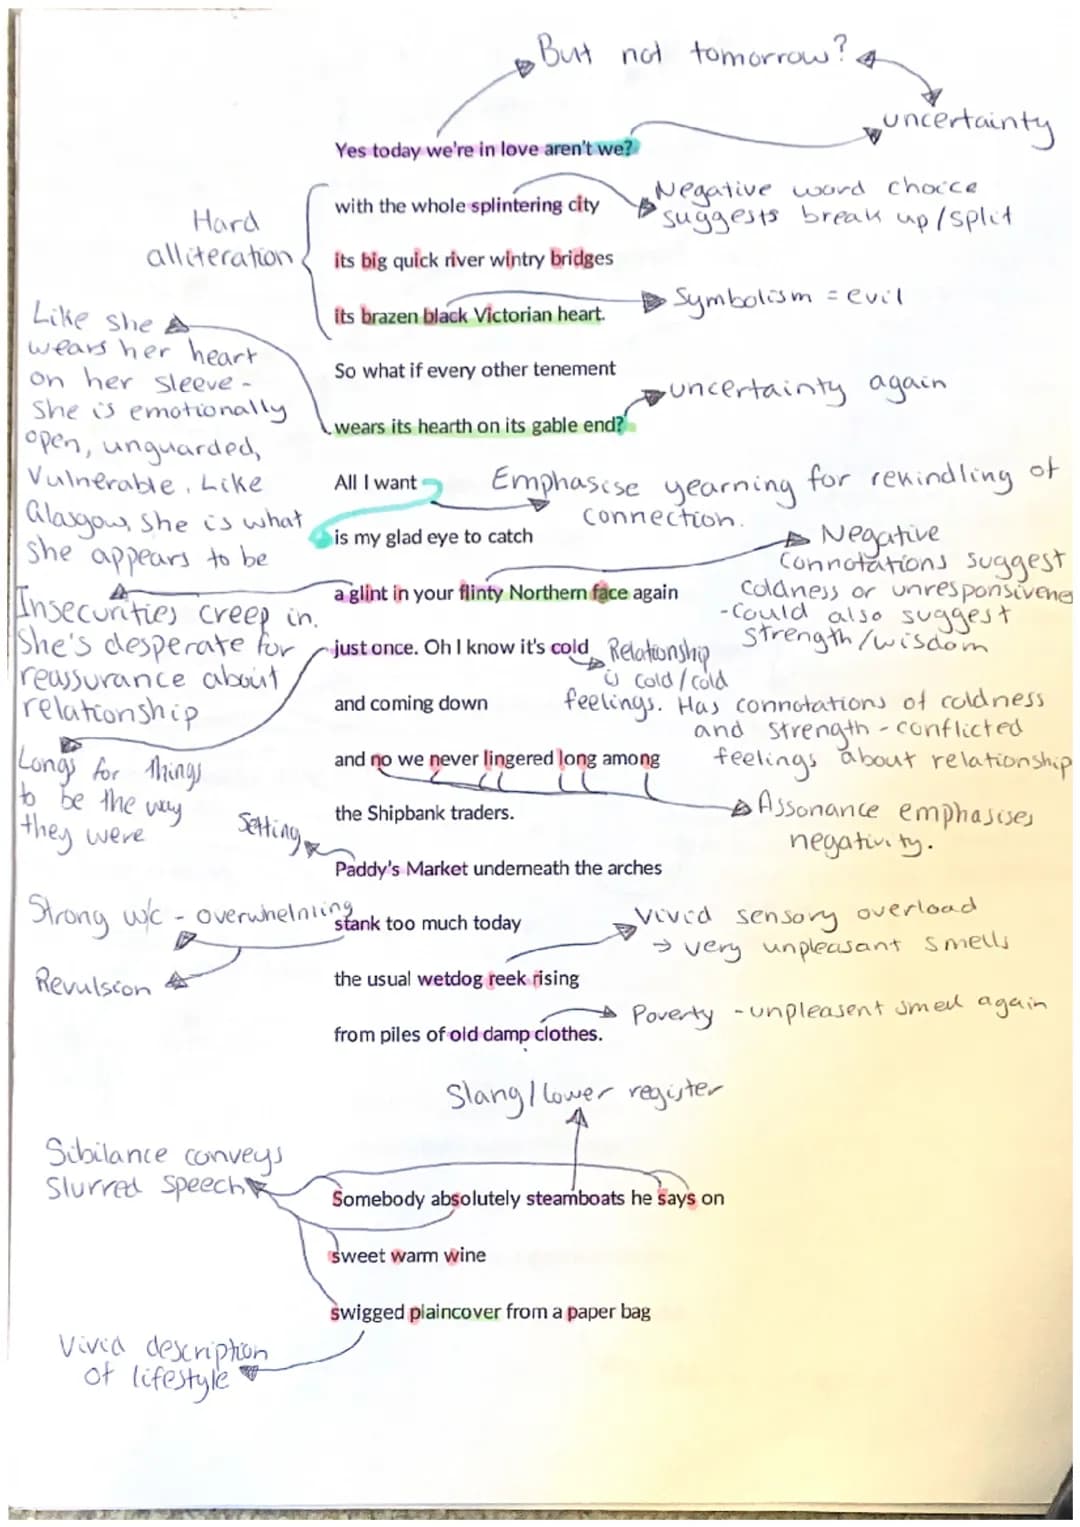 But not tomorrow?
uncertainty
Yes today we're in love aren't we?
with the whole splintering city
Negative word choice
suggests break up/split
Hard
alliteration
its big quick river wintry bridges
its brazen black Victorian heart.
Symbolism = evil
Like she
wears her heart
on her sleeve -
She is emotionally
open, unguarded,
Vulnerable. Like
Glasgow, she is what
she appears to be
So what if every other tenement
wears its hearth on its gable end?
uncertainty again
All I want
Emphasise yearning for rekindling of
connection.
is my glad eye to catch
Negative
connotations suggest
coldness or unresponsivene
-could also suggest
strength/wisdom
a glint in your flinty Northern face again
Insecurities creep in.
She's desperate for
reassurance about
relationship
just once. Oh I know it's cold
Relationship
is cold/cold
feelings. Has connotations of coldness
and strength - conflicted
feelings about relationship
and coming down
Longs for things
to be the way
they were
and no we never lingered long among
Assonance emphasises
negativity.
the Shipbank traders.
Setting
Paddy's Market underneath the arches
Strong w/c - overwhelming
Revulsion
stank too much today
Vivid sensory overload
→ very unpleasant smells
the usual wetdog reek rising
Poverty - unpleasent smell again
from piles of old damp clothes.
Slang/lower register
Sibilance conveys
slurred speech
Somebody absolutely steamboats he says on
sweet warm wine
swigged plaincover from a paper bag
Vivid description
of lifestyle